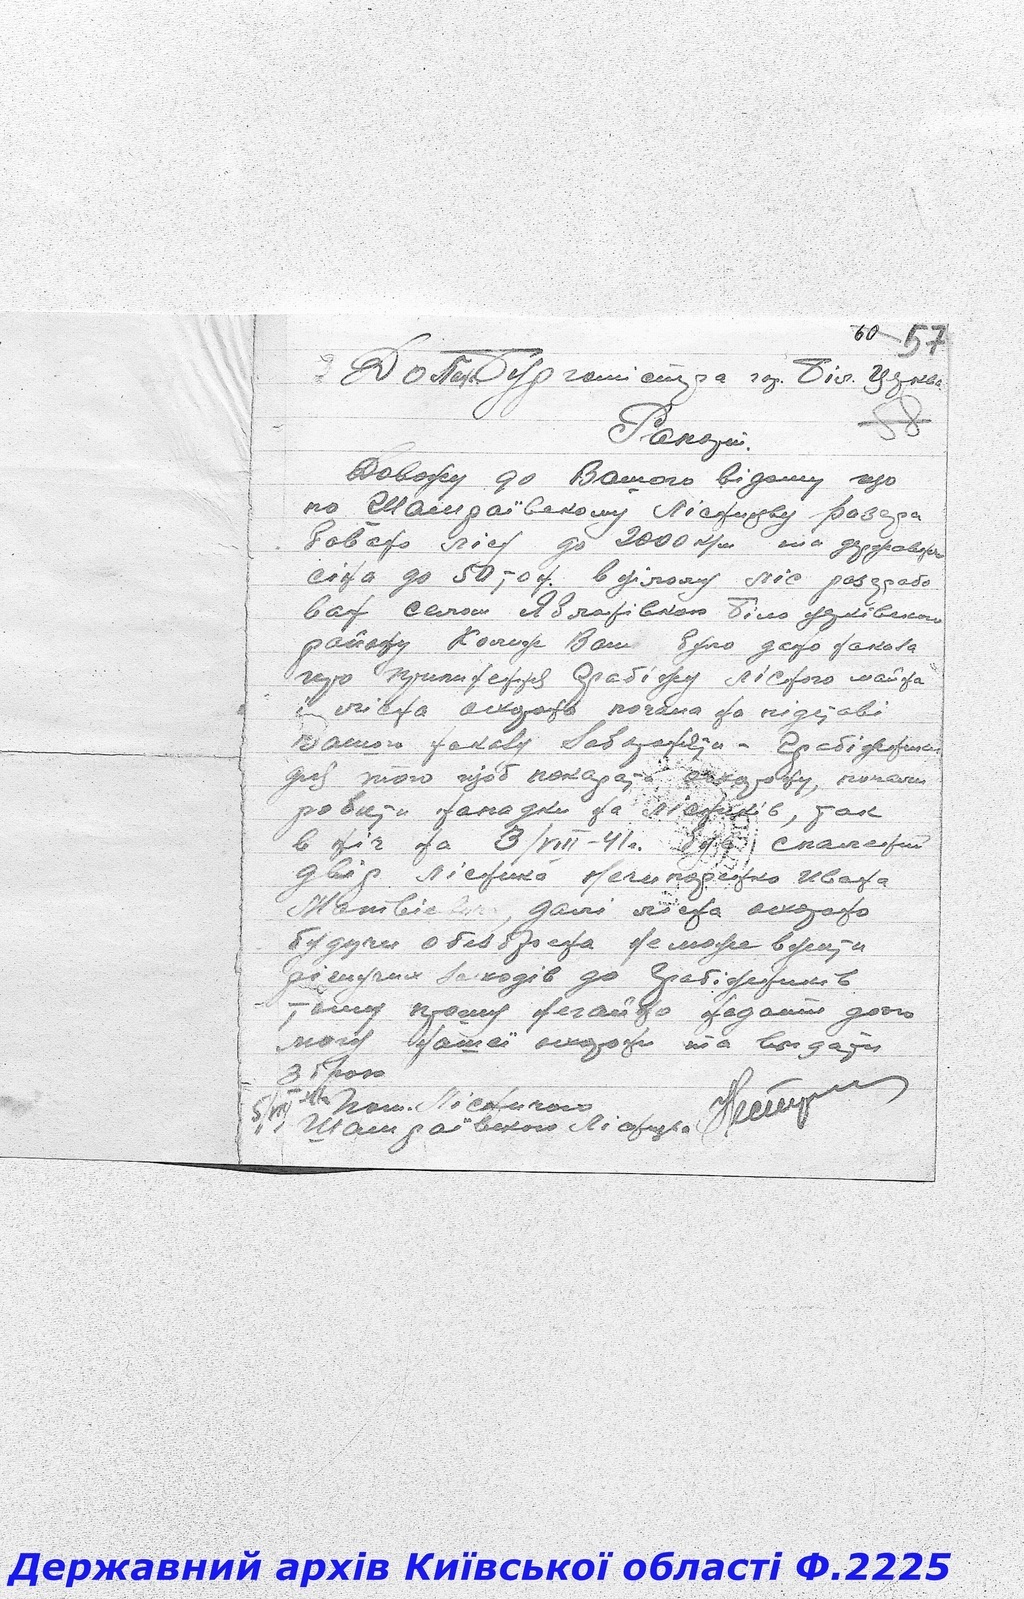 60 57
До Пан. Бургомістра гор. Біл. Церква
58
Рапорт.
Довожу до Вашого відому що
по Шамраївскому Лісництву разгра
бовано лісу до 2000 к/м та державного
сіна до 50,0 т. вцілому ліс разграбо
ван селом Яблунівкою Біло церківского
району Коли ж Вами було дано наказа
про припинення грабіжу лісного майна
і лісна охорона почала на підставі
Вашого наказу забороняти - грабіжники
для того щоб покарати охорону, почали
робити нападки на лісників, так
в ніч на 3/VIII-41 р. був спалений
двір лісника Нечипоренко Ивана
Матвієвича, далі лісна охорона
будучи обезброєна не може вжити
рішучих заходів до грабіжників
тому прошу негайно надати допо
могу нашої охорони та видати
зброю
5/VIII 41 р. Пом. Лісничого
Шамраївского Лісництва